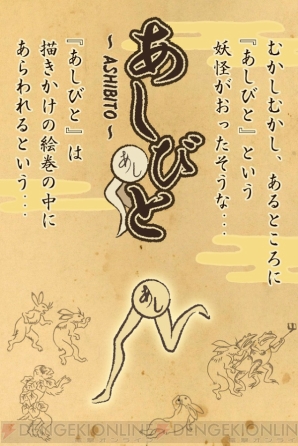 むかしむかし、あるところに
『あしびと』という
妖怪がおったそうな・・・
あしびと
～ ASHIBITO ～
あし
『あしびと』は
描きかけの絵巻の中に
あらわれるという・・・
あし
DENGEKIONLINE DENGEKIONLINE